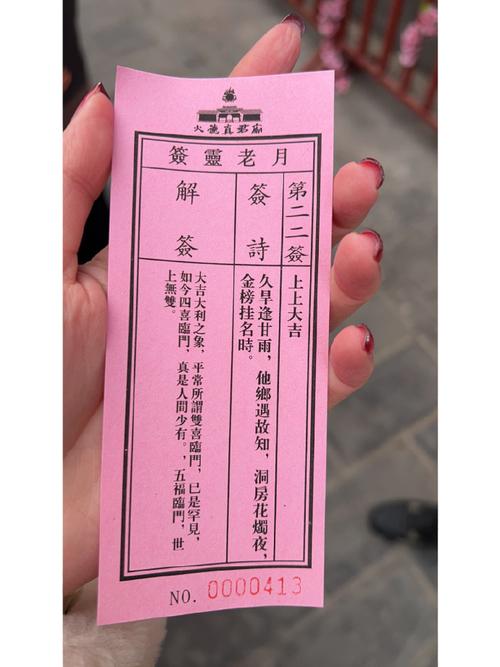 火德真君廟
月老靈簽
第二二簽
上上大吉
簽詩
久旱逢甘雨，他鄉遇故知，洞房花燭夜，
金榜挂名時。
解簽
大吉大利之象，平常所謂雙喜臨門，已是罕見，
如今四喜臨門，真是人間少有。，五福臨門，世
上無雙。
NO. 0000413